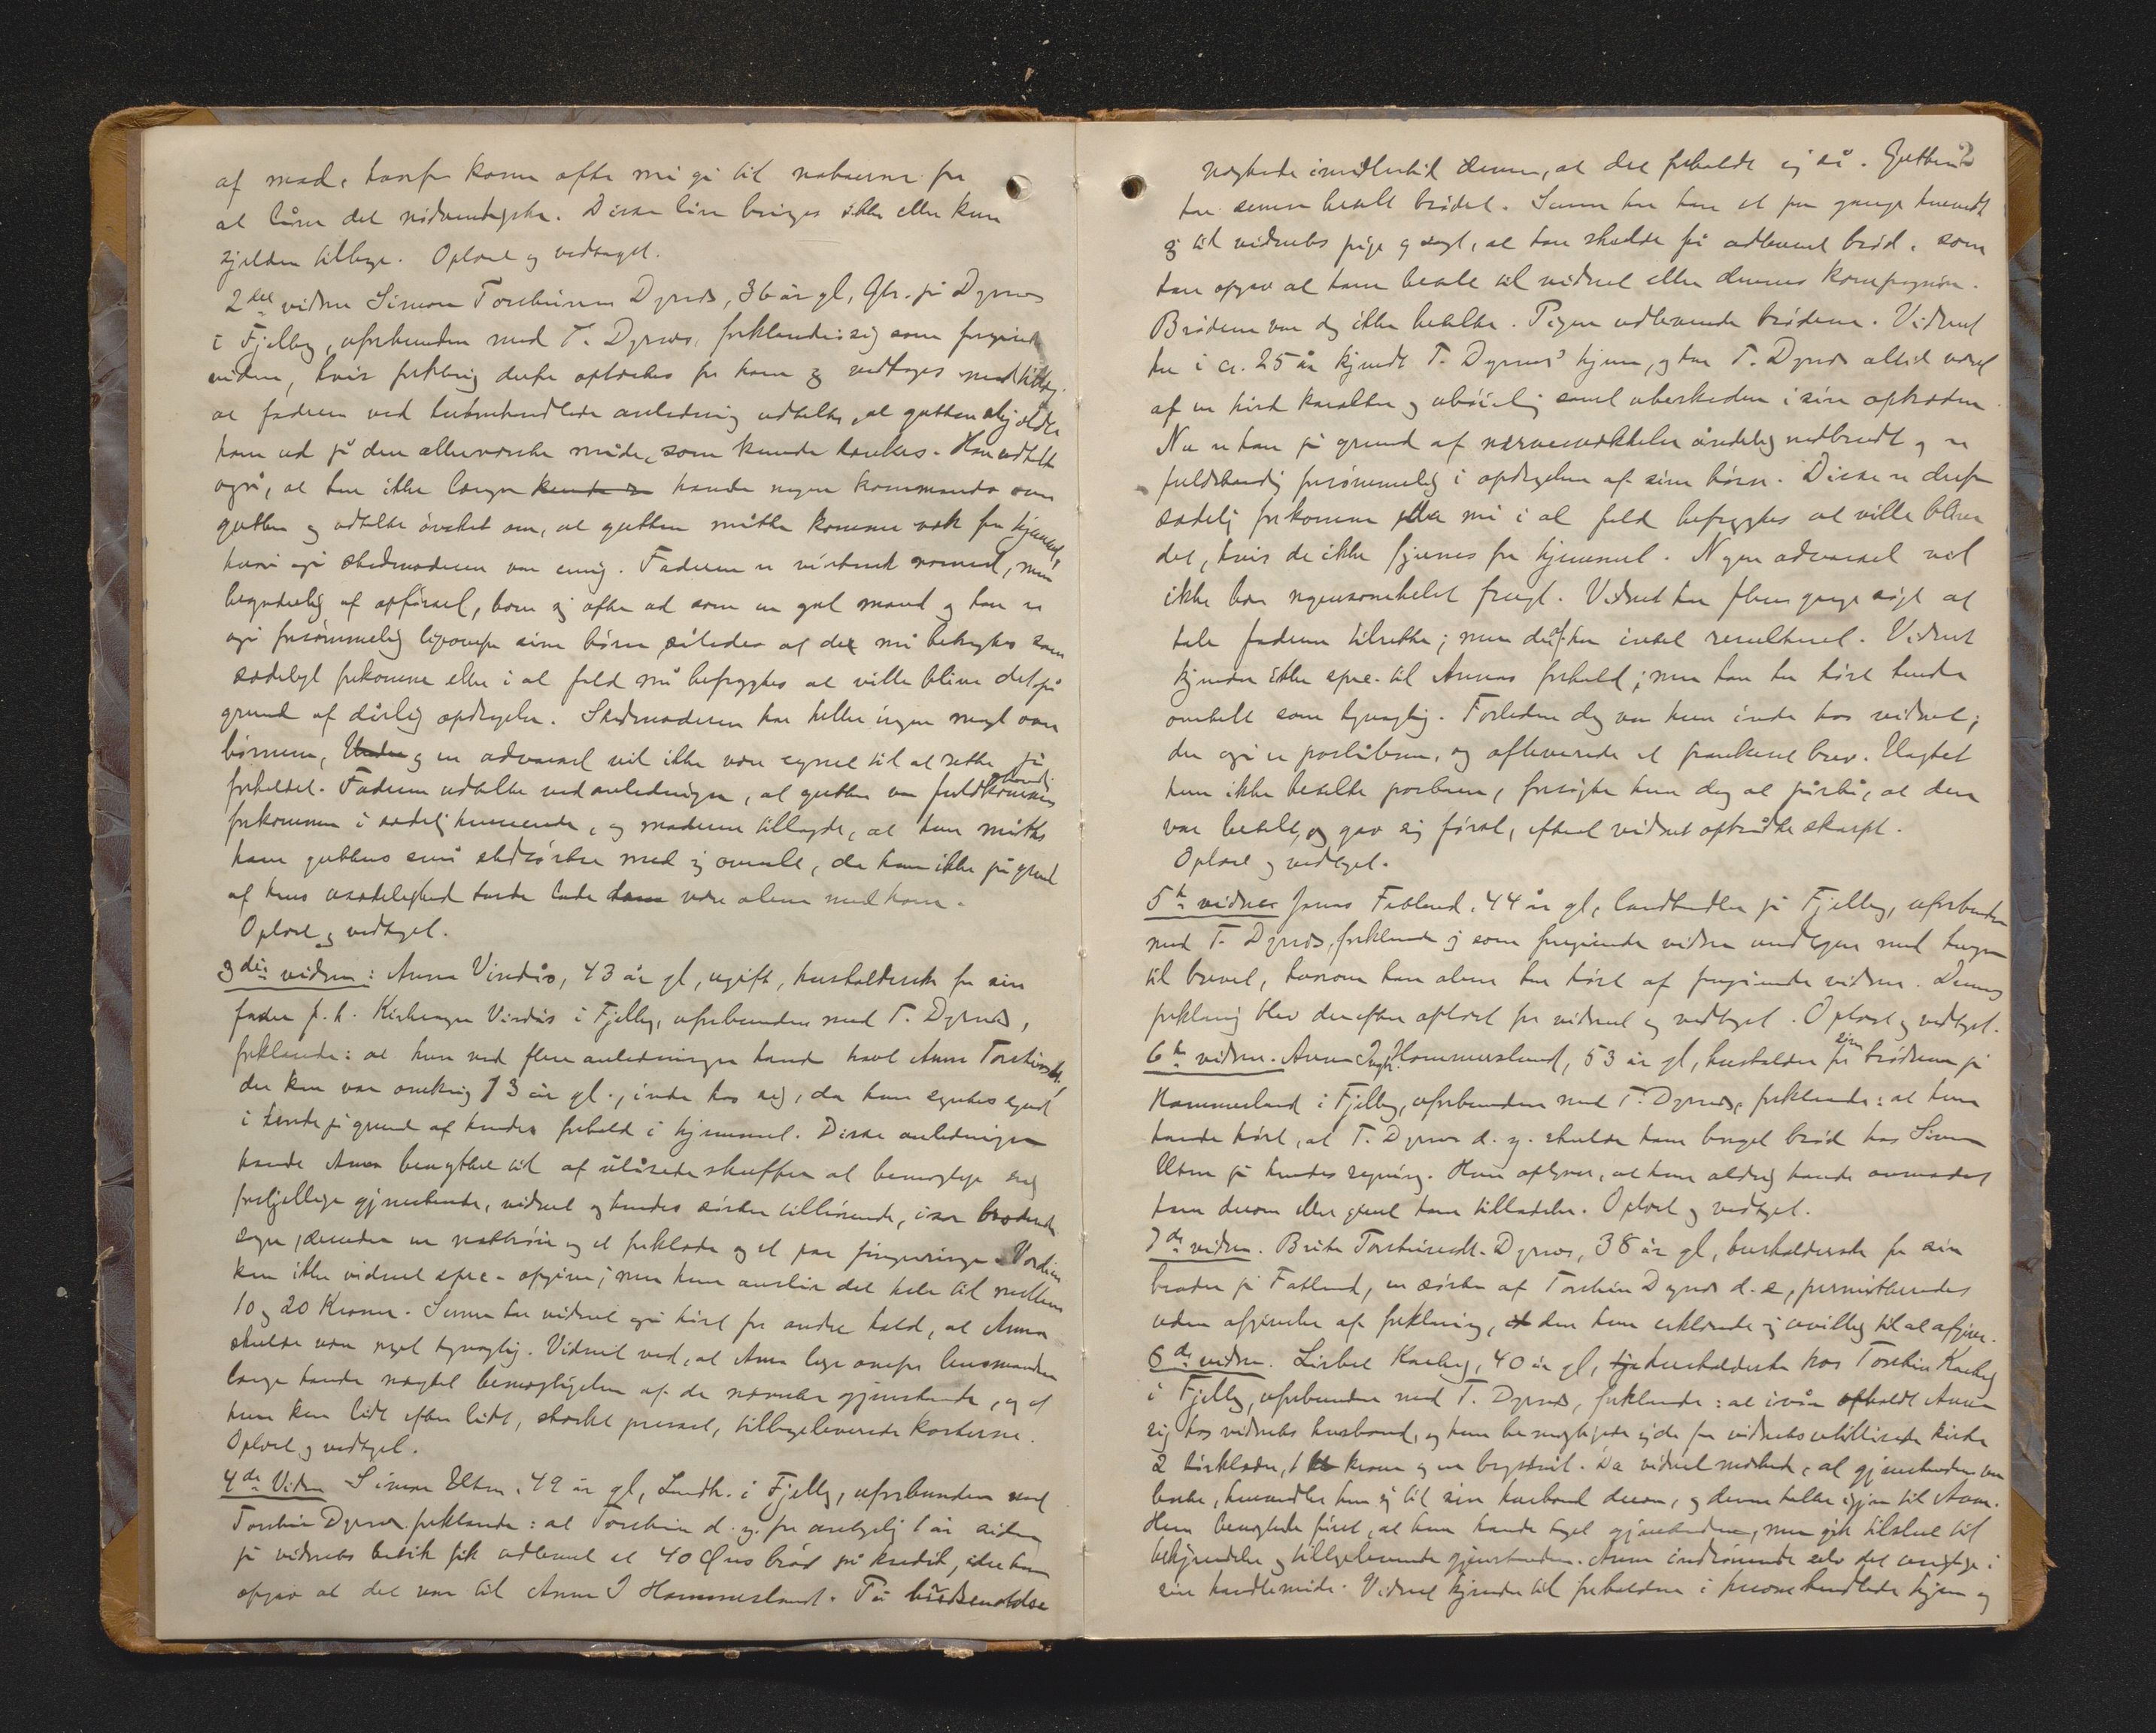 af mad, hvorfor konen ofte må gå til naboerne for
at låne det nødvendigste. Disse lån bringes ikke eller kun
sjelden tilbage. Oplæst og vedtaget.
2det vidne Simon Torsteinsen Dyrnes, 36 år gl, Gbr. på Dyrnes
i Fjelberg, uforbunden med T. Dyrnes, forklarede sig som foregående
vidne, hvis forklaring derfor oplæstes for ham og vedtages med tillæg
at faderen ved anledning udtalte, at gutten skjældte
ham ud på den allerværste måde, som kunde tænkes. Han udtalte
også, at han ikke længer kunde havde nogen kommando over
gutten og udtalte ønsket om, at gutten måtte komme væk fra hjemmet,
hvori også stedmoderen var enig. Faderen er normal, men
af opførsel, bær sig ofte ad som en gal mand og han er
også forsømmelig ligeoverfor sine børn således at de må betragtes som
sædeligt forkomne eller i al fald må befrygtes at ville blive det på
grund af dårlig opdragelse. Stedmoderen har heller ingen magt over
børnene, og en advarsel vil ikke være egnet til at rette på
forholdet. Faderen udtalte ved anledningen, at gutten var fuldstændig
forkommen i sædelig henseende, og moderen tillagde, at hun måtte
have guttens små stedsøstre med sig overalt, da hun ikke på grund
af hans usædelighed turde lade dem være alene med ham.
Oplæst og vedtaget.
3die vidne: Anna Vindås, 43 år gl, ugift, husholderske for sin
fader f. h. Kirkesanger Vindås i Fjelberg, uforbunden med T. Dyrnes,
forklarede: at hun ved flere anledninger havde havt Anna Torsteinsd.,
der kun var omkring 13 år gl., inde hos sig, da hun syntes synd
i hende på grund af hendes forhold i hjemmet. Disse anledninger
havde Anna benyttet til af ulåsede skuffer at bemægtige sig
forskjellige gjenstande, vidnet og hendes søster tilhørende, især broderede
sager, desuden en nattrøie og et forklæde og et par fingerringe. Værdien
kan ikke vidnet spec. opgive; men hun anslår det hele til mellem
10 og 20 Kroner. Senere har vidnet også hørt fra andre hold, at Anna
skulde være noget tyvagtig. Vidnet ved, at Anna ligeoverfor lensmanden
længe havde nægtet bemægtigelsen af de nævnte gjenstande, og at
hun kun lidt efter lidt, stærkt presset, tilbageleverede kosterne.
Oplæst og vedtaget.
4de Vidne Simon Eltun, 49 år gl, Landh. i Fjelberg, uforbunden med
Torstein Dyrnes forklarede: at Torstein d. y. for antagelig 1 år siden
på vidnets butik fik udleveret et 40 Øres brød på kredit, idet han
opgav at det var til Anna I Hammersland. På

2
nægtede imidlertid denne, at det forholdt sig så. Gutten
har senere betalt brødet. Senere har han et par gange henvendt
sig til vidnets pige og sagt, at han skulde få udleveret brød, som
han opgav at have betalt til vidnet eller dennes kompagnon.
Brødene var dog ikke betalte. Pigen udleverede brødene. Vidnet
har i ca. 25 år kjendt T. Dyrnes' hjem, og har T. Dyrnes altid været
af en hård karakter og ubøielig samt ubehersket i sin optræden.
Nu er han på grund af nærvesvækkelse åndelig nedbrudt og er
fuldstændig forsømmelig i opdragelsen af sine børn. Disse er derfor
sædelig forkomne eller må i al fald befrygtes at ville blive
det, hvis de ikke fjernes fra hjemmet. Nogen advarsel vil
ikke bære nogensomhelst frugt. Vidnet har flere gange søgt at
tale faderen tilrette; men deraf har intet resulteret. Vidnet
kjender ikke spec. til Annas forhold; men han har hørt hende
omtalt som tyvagtig. Forleden dag var hun inde hos vidnet;
der også er poståbner, og afleverede et frankeret brev. Uagtet
hun ikke betalte portoen, forsøgte hun dog at påstå, at den
var betalt, og gav sig først, efterat vidnet optrådte skarpt.
Oplæst og vedtaget.
5te vidne Jonas Fatland, 44 år gl, landhandler på Fjelberg, uforbunden
med T. Dyrnes, forklarede sig som foregående vidne undtagen med hensyn
til brevet, hvorom han alene har hørt af foregående vidne. Dennes
forklaring blev derefter oplæst for vidnet og vedtaget. Oplæst og vedtaget.
6te vidne. Anna Hammersland, 53 år gl, husholder for sin brødrene på
Hammersland i Fjelberg, uforbunden med T. Dyrnes, forklarede: at hun
havde hørt, at T. Dyrnes d. y. skulde have borget brød hos Simon
Eltun på hendes regning. Hun oplyser, at hun aldrig havde anmodet
ham derom eller givet ham tilladelse. Oplæst og vedtaget.
7de vidne. Brita Torsteinsdt. Dyrnes, 38 år gl, husholderske for sin
broder på Fatland, en søster af Torstein Dyrnes d. e., permitteredes
uden afgivelse af forklaring, den hun erklærede sig uvillig til at afgive.
8de vidne. Lisbet Kaarberg, 40 år gl, husholderske hos Torstein Kaarberg
i Fjelberg, uforbunden med T. Dyrnes, forklarede: at ivår opholdt Anna
sig hos vidnets husbond, og hun bemægtigede sig da fra vidnets kiste
2 tørklæder, 1 krone og en brystnål. Da vidnet mærkede, at gjenstandene var
borte, henvendte hun sig til sin husbond derom, og denne talte igjen til Anna.
Hun benegtede først, at hun havde taget gjenstandene, men gik tilslut til
bekjendelse og tilbageleverede gjenstanden. Anna indrømmede selv det urigtige i
sin handlemåde. Vidnet kjender til forholdene i hjem og